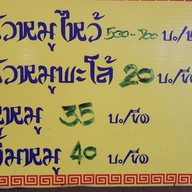 หัวหมูไหว้ 500-700 บ./
หัวหมูพะโล้ 20 บ./ขีด
หมู 35 บ./ขีด
หมู 40 บ./ขีด